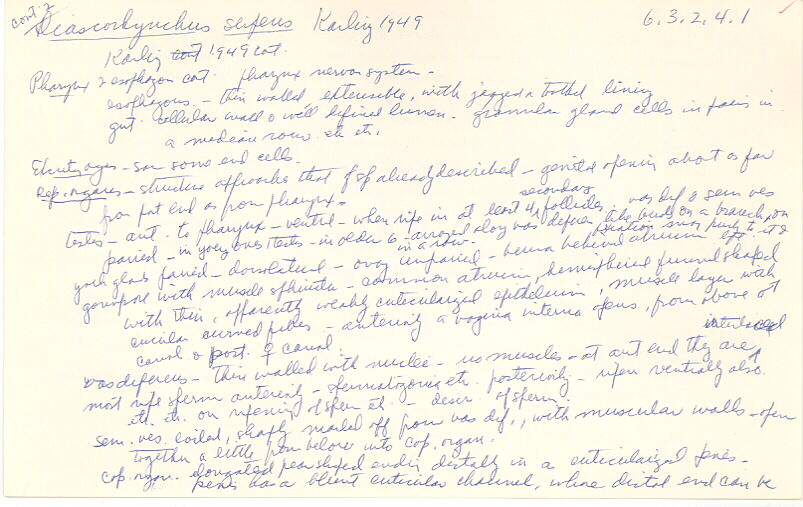 cont. 2
Diascorhynchus serpens Karling 1949 6.3.2.4.1
Karling 1949 cont.
Pharynx & esophagus cont. pharynx nervous system -
esophagous - thin walled extensible, with jagged or toothed lining
gut - cellular wall & well defined lumen - granular gland cells in pairs in
a median row. etc etc.
- saw some end cells.
Rep. organs - structure approaches that of sp already described - genital opening about as far
from post end as from pharynx.
testes - ant. to pharynx - ventral - when ripe in at least 4 secondary follicles. vas def & sem ves
paired - in young ones 1 testes - in older 6 - arranged along vas deferens like buds on a branch, or
in a row.
yolk glands paired - dorsolateral - ovary unpaired - behind atrium
gonopore with muscle sphincter - common atrium, hemisphere funnel shaped
with thin, apparently weakly cuticularized epithelium, muscle layer with
circular curved fibers - anteriorly a vagina interna opens, from above ♂
canal & post. ♀ canal.
vas deferens - thin walled with nuclei - no muscles - at ant end they are interlaced
most ripe sperm anteriorly - spermatogonia etc. posteriorly - ripen ventrally also.
etc. etc. on ripening of sperm etc. - descr. of sperm.
sem. ves. coiled, sharply marked off from vas def., with muscular walls - open
together a little from below into cop. organ.
cop. organ. elongated pear shaped ending distally in a cuticularized penis -
penis has a blunt cuticular channel, whose distal end can be